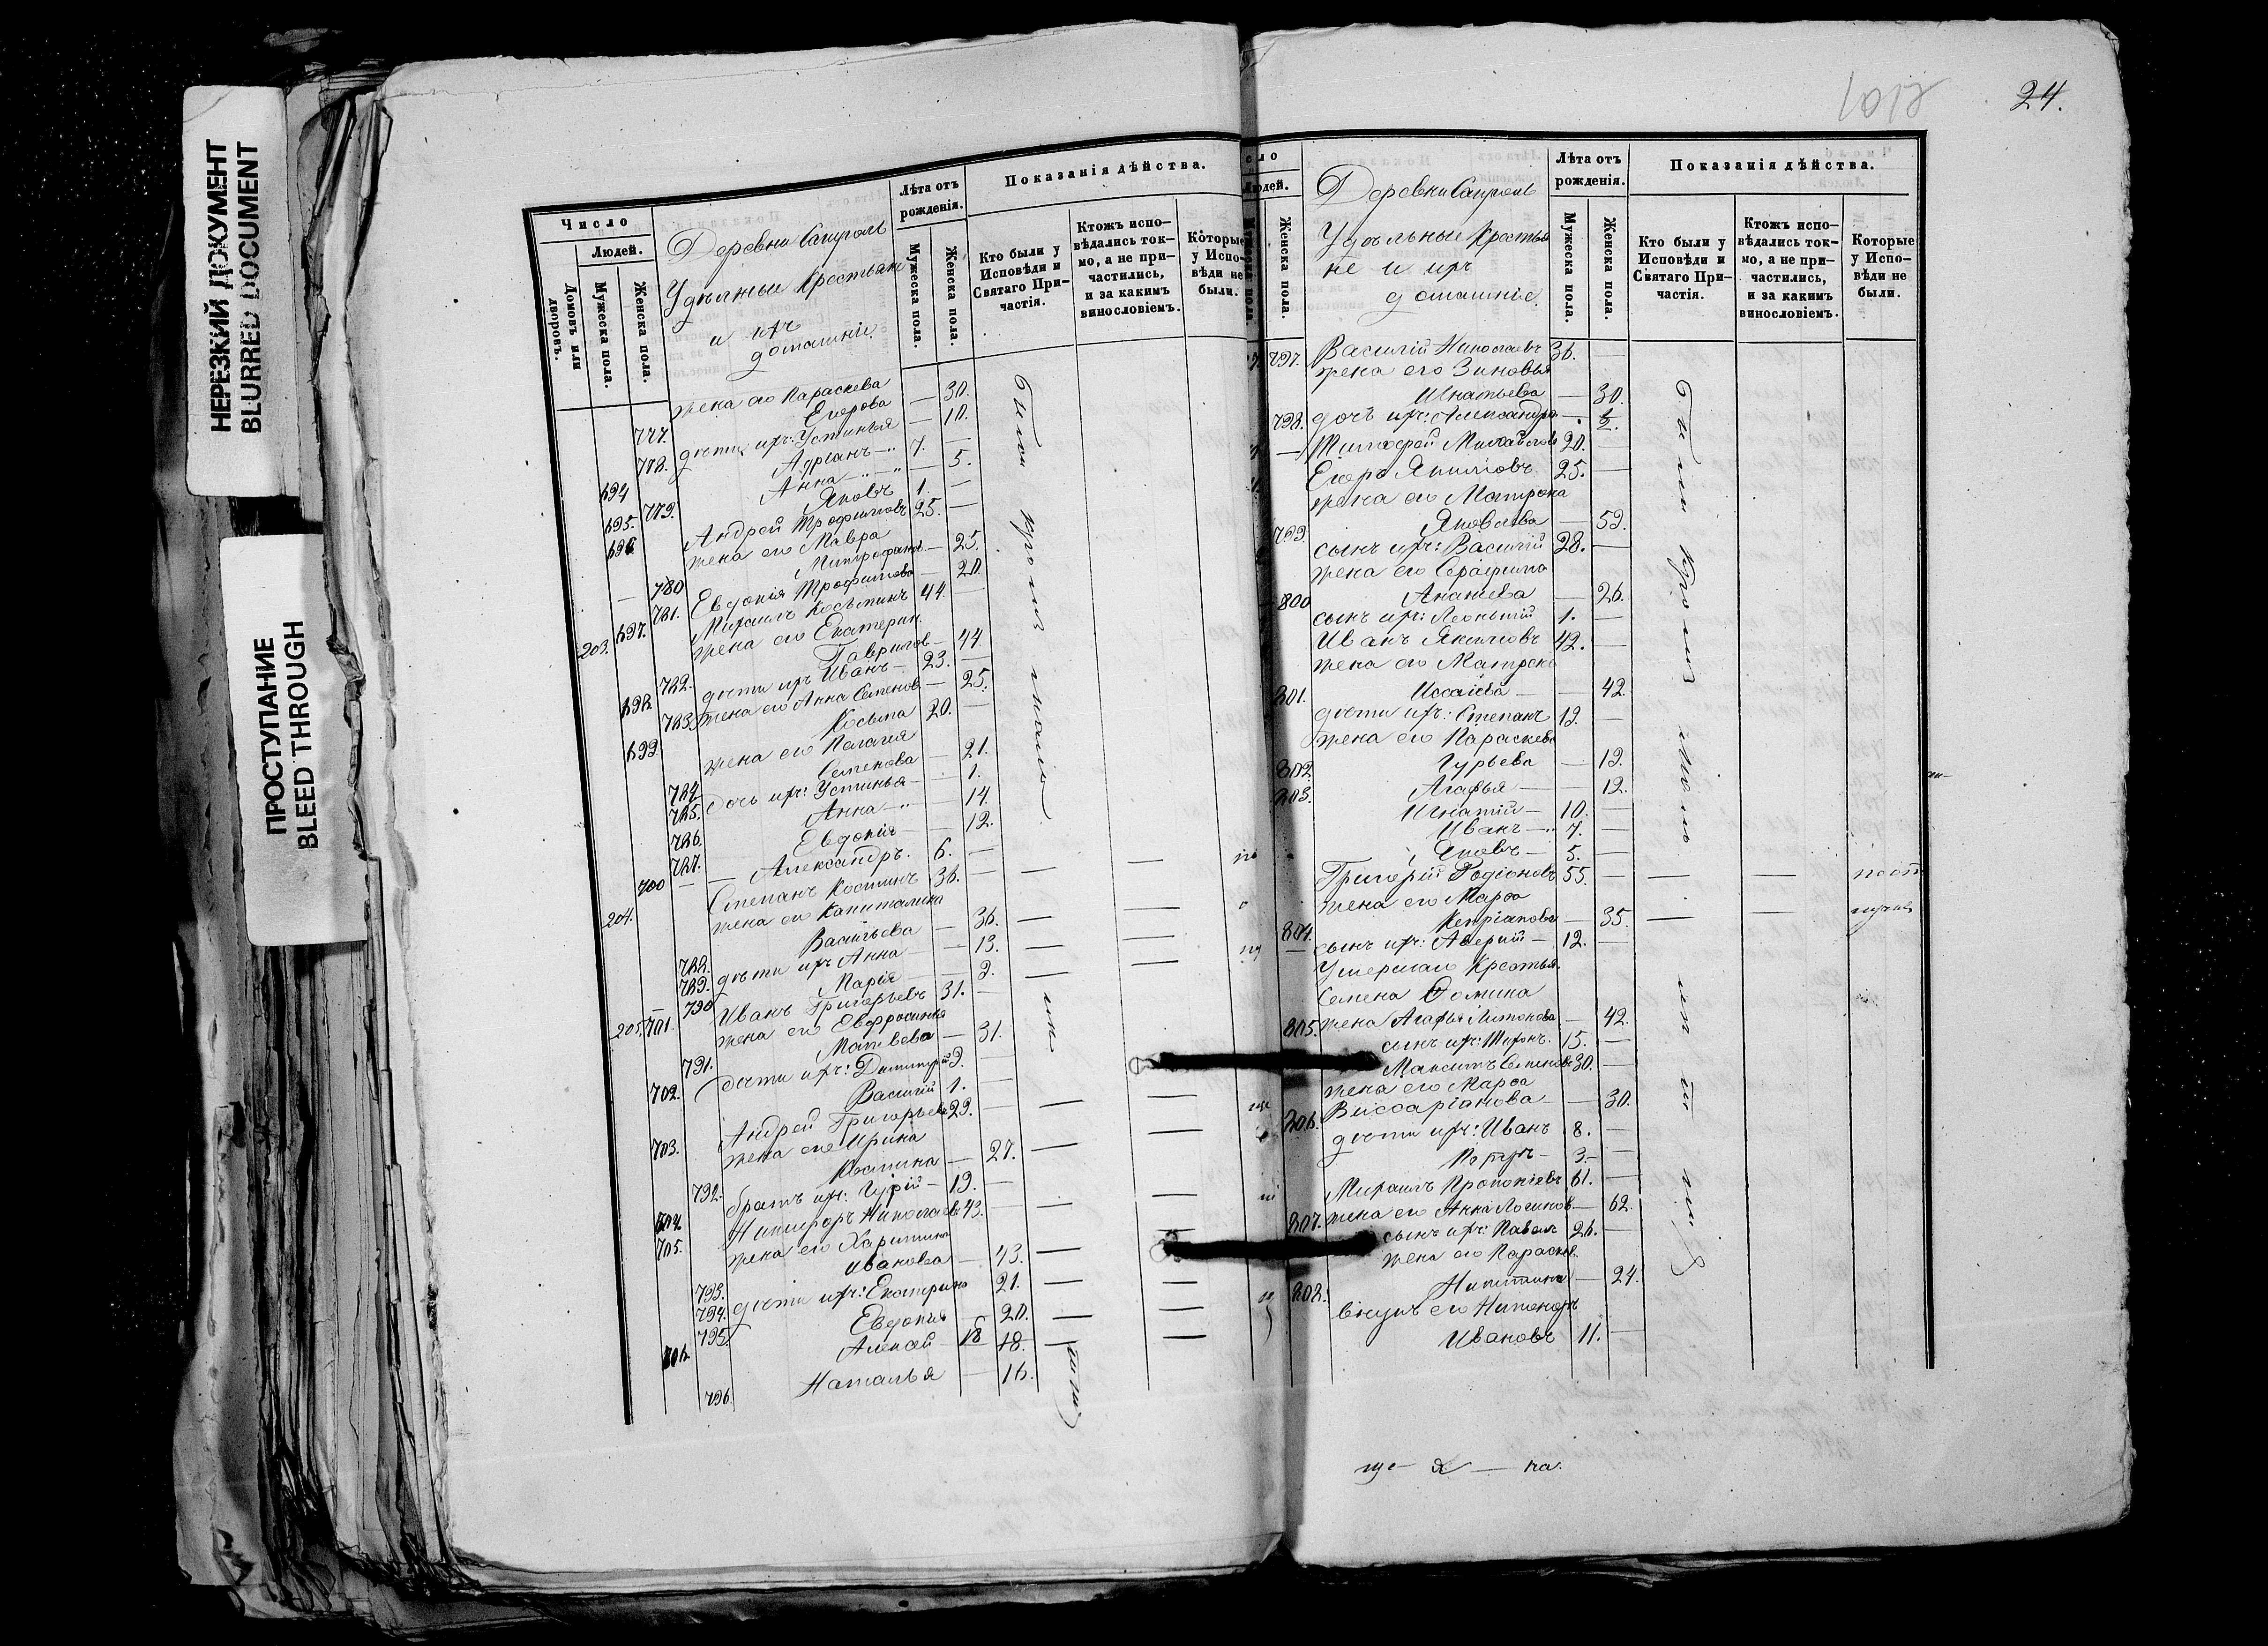 НЕРЕЗКИЙ ДОКУМЕНТ
BLURRED DOCUMENT
ПРОСТУПАНИЕ
BLEED THROUGH
Число
Людей.
Домовъ или дворовъ.
Мужеска пола.
Женска пола.
Удѣльные Крестьяне
и ихъ
домашніе.
Лѣта отъ рожденія.
Мужеска пола.
Женска пола.
Показанія дѣйства.
Кто были у Исповѣди и Святаго Причастія.
Ктожъ исповѣдались токмо, а не причастились, и за какимъ винословіемъ.
Которые у Исповѣди не были.
жена его Параскева
777. Егорова — 30.
778. дѣти ихъ: Устинья — 10.
694 Адріанъ 7. —
779. Анна — 5.
695. Яковъ 1. —
696 Андрей Трофимовъ 25. —
жена его Мавра
780 Митрофанов — 25.
781. Евдокія Трофимова — 20.
203. 697. Михаилъ Косьминъ 44. —
жена его Екатерин.
782. Гаврилов — 44.
698. дѣти ихъ Иванъ 23. —
783. жена его Анна Семенов — 25.
699 Косьма 20. —
жена его Пелагея
784. Семенова — 21.
785. дочь ихъ: Устинья — 1.
786. Анна — 14.
787. Евдокія — 12.
700 — Александръ. 6. —
204. Степанъ Костинъ 36. —
жена его Капиталина
788. Васильева — 36.
789. дѣти ихъ Анна — 13.
790 Марія — 2.
205. 701. Иванъ Григорьевъ 31. —
жена его Евфросинья
791. Матвева — 31.
702. дѣти ихъ: Димитрій 9. —
Василій 1. —
703. Андрей Григорьевъ 29. —
жена его Ирина
792. Костина — 27.
704. братъ ихъ: Гурій 19. —
705. Никифоръ Николаевъ 43. —
жена его Харитина
793. Иванова — 43.
794. дѣти ихъ: Екатерина 21.
795. Евдокія 20.
706. Алексей 18 18.
796. Наталья — 16.
были кромѣ
1017
24.
Людей.
Женска пола.
Удѣльные Крестья
не и ихъ
домашніе.
Лѣта отъ рожденія.
Мужеска пола.
Женска пола.
Показанія дѣйства.
Кто были у Исповѣди и Святаго Причастія.
Ктожъ исповѣдались токмо, а не причастились, и за какимъ винословіемъ.
Которые у Исповѣди не были.
797. Василій Николаевъ 36. —
жена его Зиновья
Игнатьева — 30.
798. дочь ихъ: Александра —
20. —
Егоръ Якимовъ 25. —
жена его Матрона
799. Яковлева — 59.
сынъ ихъ: Василій 28. —
жена его Серафима
800 Ананіева — 26.
сынъ ихъ: Леонтій 1. —
Иванъ Якимовъ 42. —
жена его Матрена
801. Иссаіева — 42.
дѣти ихъ: Степанъ 19. —
жена его Параскева
802. Гурьева — 19.
803. Агафья — 12.
Игнатій 10. —
Иванъ 7. —
Яковъ 5. —
Григорій Родіоновъ 55. —
жена его Марѳа
804. Кипріанова — 35.
сынъ ихъ: Аверкій 12. —
Умершаго Крестья.
Семена Ѳомина
805. жена Агафья Антонова — 42.
сынъ ихъ: 15. —
Максимъ Семеновъ 30. —
жена его Марѳа
806. Виссаріанова — 30.
дѣти ихъ: Иванъ 8. —
Петръ 3. —
Михаилъ Прокопіевъ 61. —
807. жена его Анна Логинов — 62.
сынъ ихъ: Павелъ 26. —
жена его Параскев.
808. Никитина — 24.
внукъ его Никаноръ
Ивановъ 11. —
были кромѣ